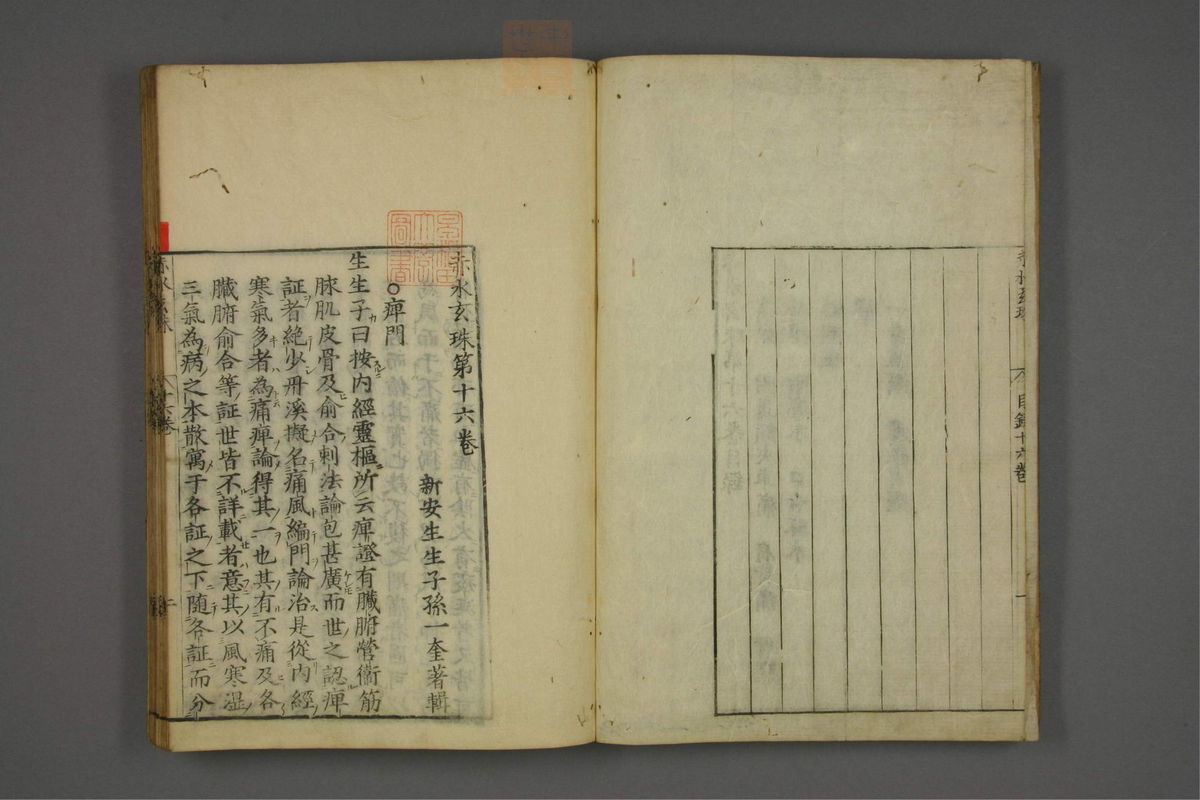 赤水玄珠
目錄十六卷
一
赤水玄珠第十六卷
新安生生子孫一奎著輯
○痺門
生生子曰按内經靈樞所云痺證有臟腑營衞筋
脉肌皮骨及俞合刺法論包甚廣而世之認痺
証者絶少丹溪擬名痛風編門論治是從内經
寒氣多者為痛痺論得其一也其有不痛及各
臟腑俞合等証世皆不詳載者意其以風寒湿
三氣為病之本散寓于各証之下随各証而分
赤水玄珠
十六卷